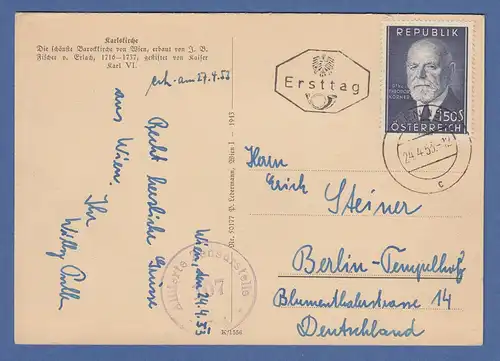 Karlskirche
Die schönste Barockkirche von Wien, erbaut von J. B.
Fischer v. Erlach, 1716—1737, gestiftet von Kaiser
Karl VI.
erh. am 27.4.53
Recht herzliche Grüsse
aus Wien.
Ihr
Willy
Wien, den 24.4.53
Nr. 50177 P. Ledermann, Wien I - 1943
Ersttag
REPUBLIK
THEODOR
KÖRNER
1.50 S
ÖSTERREICH
24.4.53.-12
c
Herrn
Erich Steiner
Berlin-Tempelhof
Blumenthalerstrasse 14
Deutschland
Alliierte Zensurstelle
K 1556